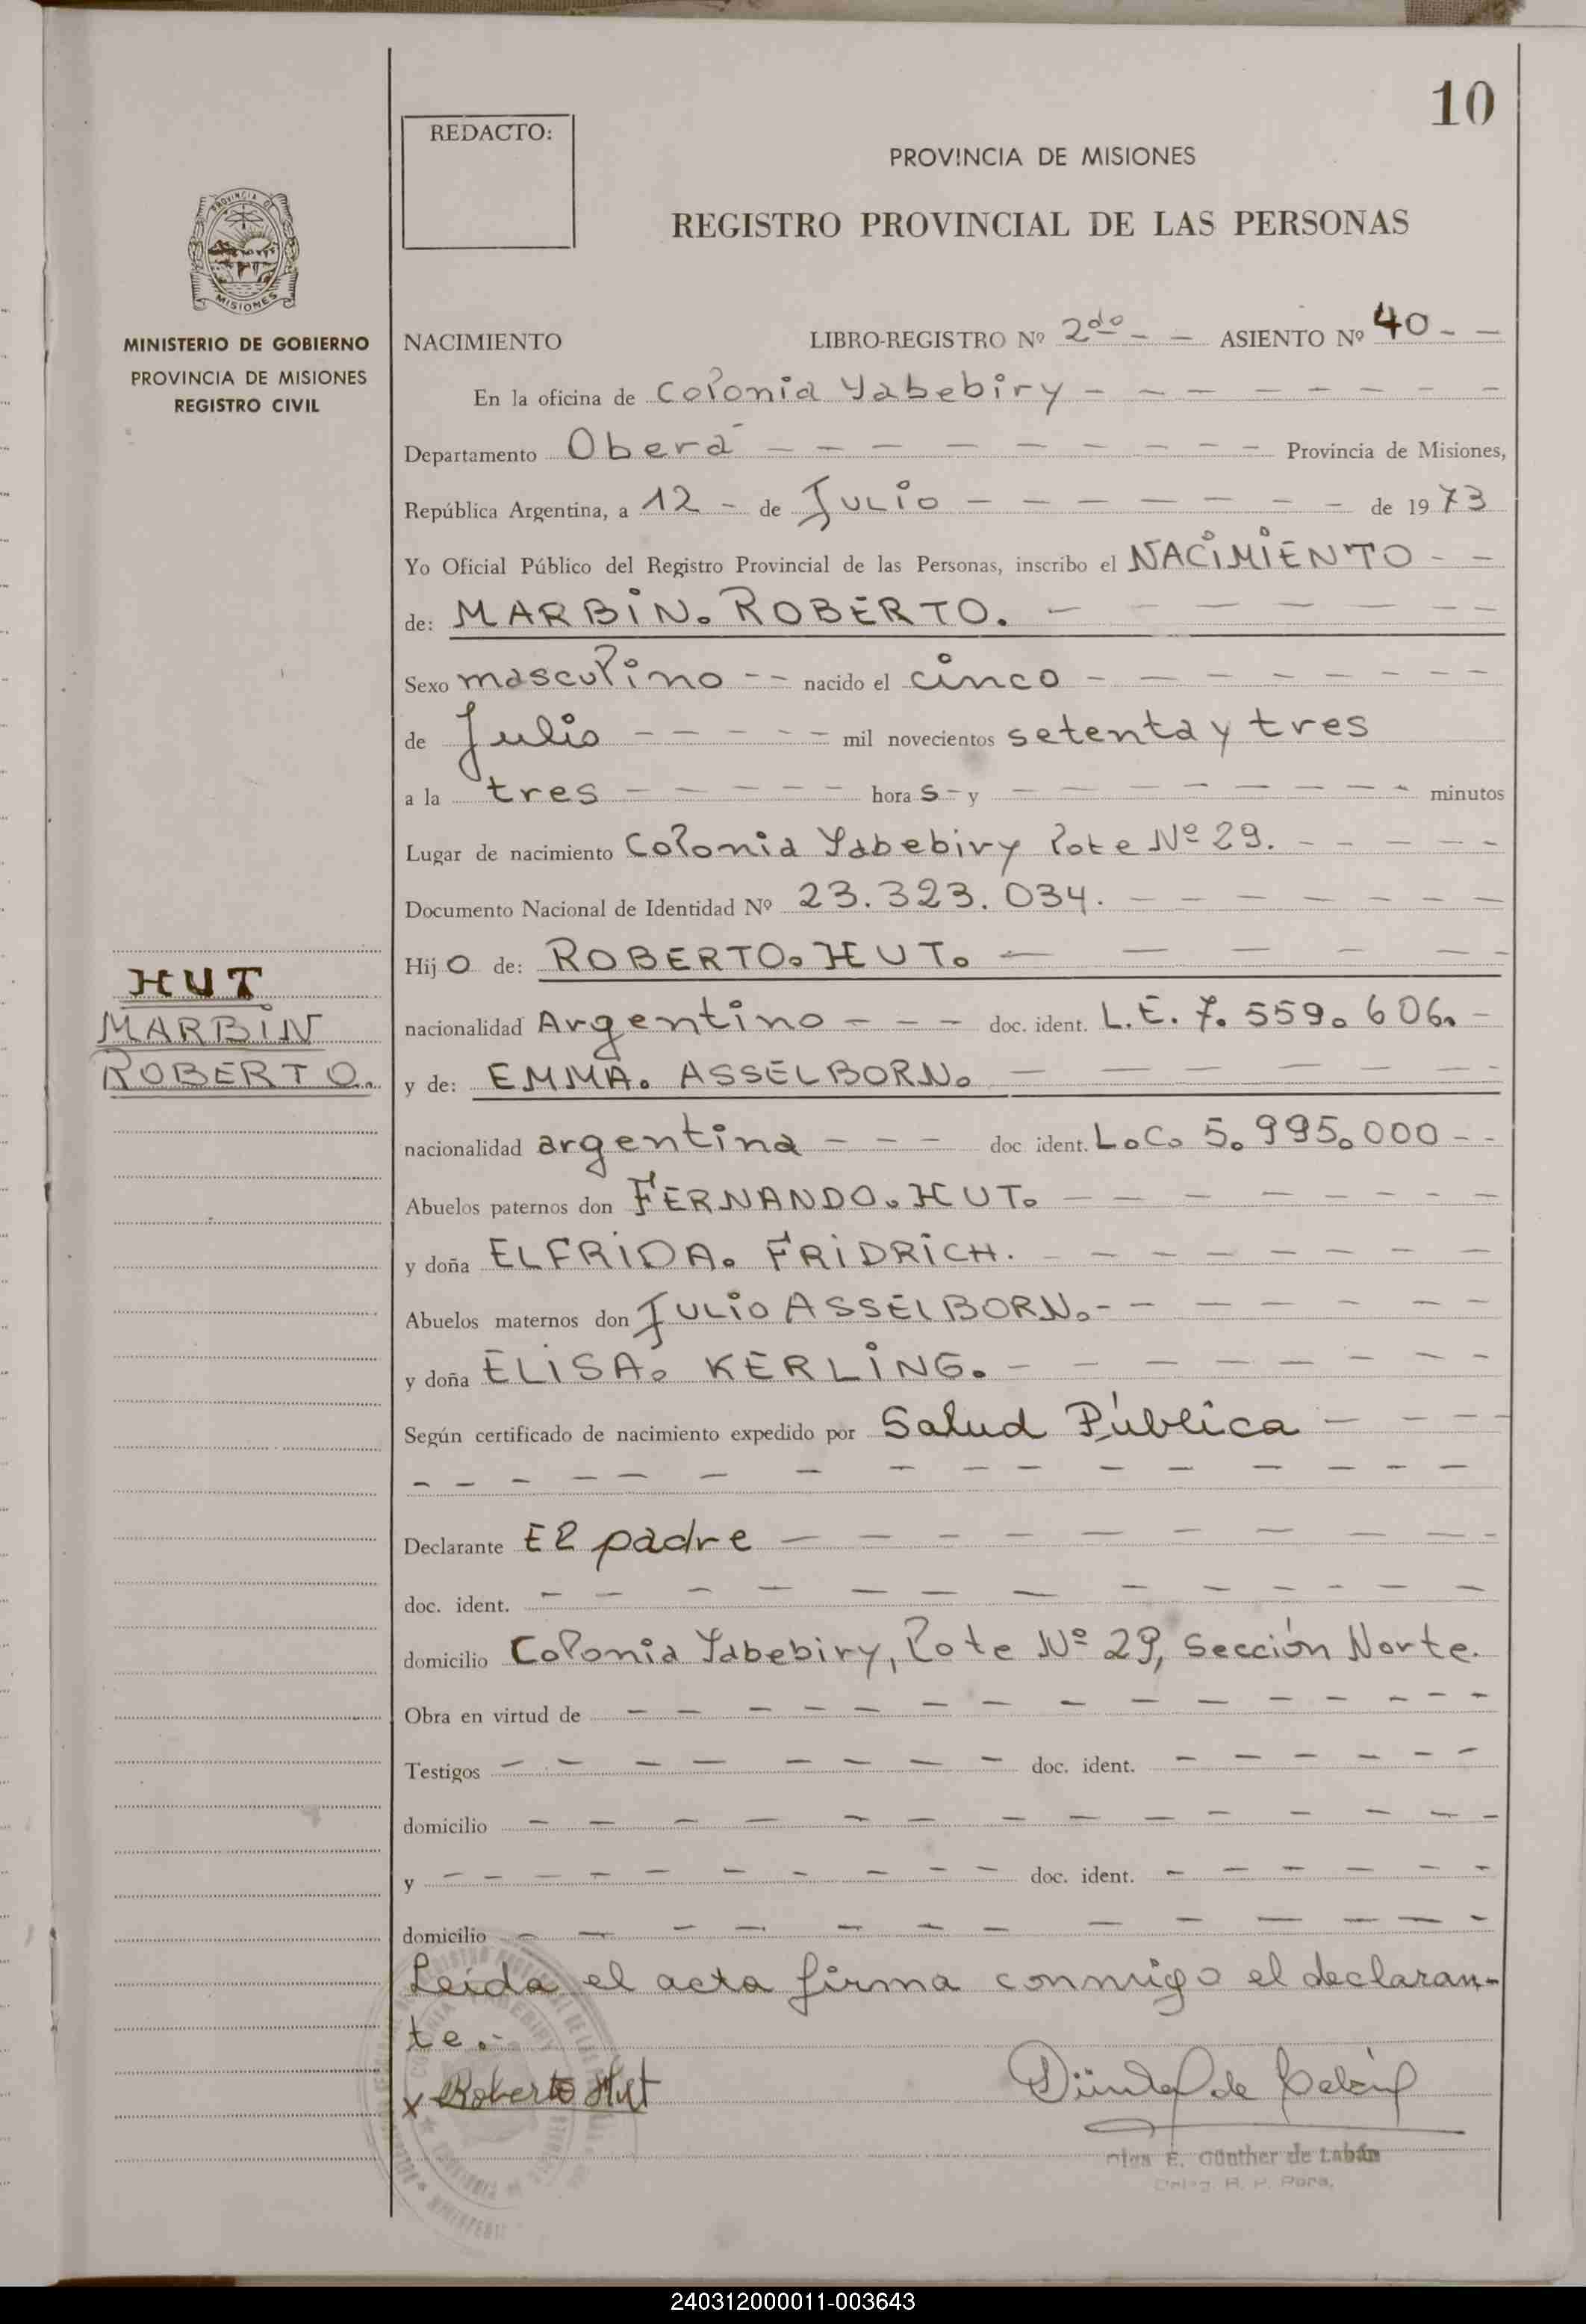 10
REDACTO:
PROVINCIA DE MISIONES
REGISTRO PROVINCIAL DE LAS PERSONAS
PROVINCIA DE
MISIONES
MINISTERIO DE GOBIERNO
PROVINCIA DE MISIONES
REGISTRO CIVIL
NACIMIENTO LIBRO-REGISTRO Nº 2do - - ASIENTO Nº 40 - -
En la oficina de Colonia Yabebiry - - - - - - - -
Departamento Oberá - - - - - - - - - Provincia de Misiones,
República Argentina, a 12 - de Julio - - - - - - - de 1973
Yo Oficial Público del Registro Provincial de las Personas, inscribo el NACIMIENTO - -
de: MARBIN. ROBERTO. - - - - - - -
Sexo masculino - - nacido el cinco - - - - - - - -
de Julio - - - - - mil novecientos setenta y tres
a la tres - - - - - hora s - y - - - - - - - - minutos
Lugar de nacimiento Colonia Yabebiry lote Nº 29. - - - - -
Documento Nacional de Identidad Nº 23.323.034. - - - - - - -
Hij o de: ROBERTO. HUT. - - - - - -
HUT
MARBIN
ROBERTO.
nacionalidad Argentino - - - doc. ident. L.E. 7.559.606. -
y de: EMMA. ASSELBORN. - - - - - - -
nacionalidad argentina - - - doc. ident. L.C. 5.995.000 - -
Abuelos paternos don FERNANDO. HUT. - - - - - - - -
y doña ELFRIDA. FRIDRICH. - - - - - - - -
Abuelos maternos don JULIO ASSELBORN. - - - - - - - -
y doña ELISA. KERLING. - - - - - - - -
Según certificado de nacimiento expedido por Salud Pública - - - -
- - - - - - - - - - - - - - -
Declarante El padre - - - - - - - - - -
doc. ident. - - - - - - - - - - - - -
domicilio Colonia Yabebiry, Lote Nº 29, Sección Norte.
Obra en virtud de - - - - - - - - - - - - - -
Testigos - - - - - - - - doc. ident. - - - - - -
domicilio - - - - - - - - - - - - -
y - - - - - - - - - doc. ident. - - - - - -
domicilio - - - - - - - - - - - -
Leida el acta firma conmigo el declaran-
te.-
x Roberto Hut
Günther de Labán
E. Günther de Labán
240312000011-003643